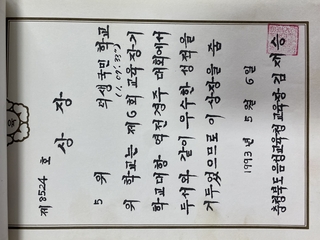 제 8524 호
상 장
5 위 의생국민학교
(1. 09' 33")
위 학교는 제6회 교육장기
학교대항 역전경주 대회에서
두서와 같이 우수한 성적을
거두었으므로 이 상장을 줌
1993년 5월 6일
충청북도음성교육청교육장 김 재